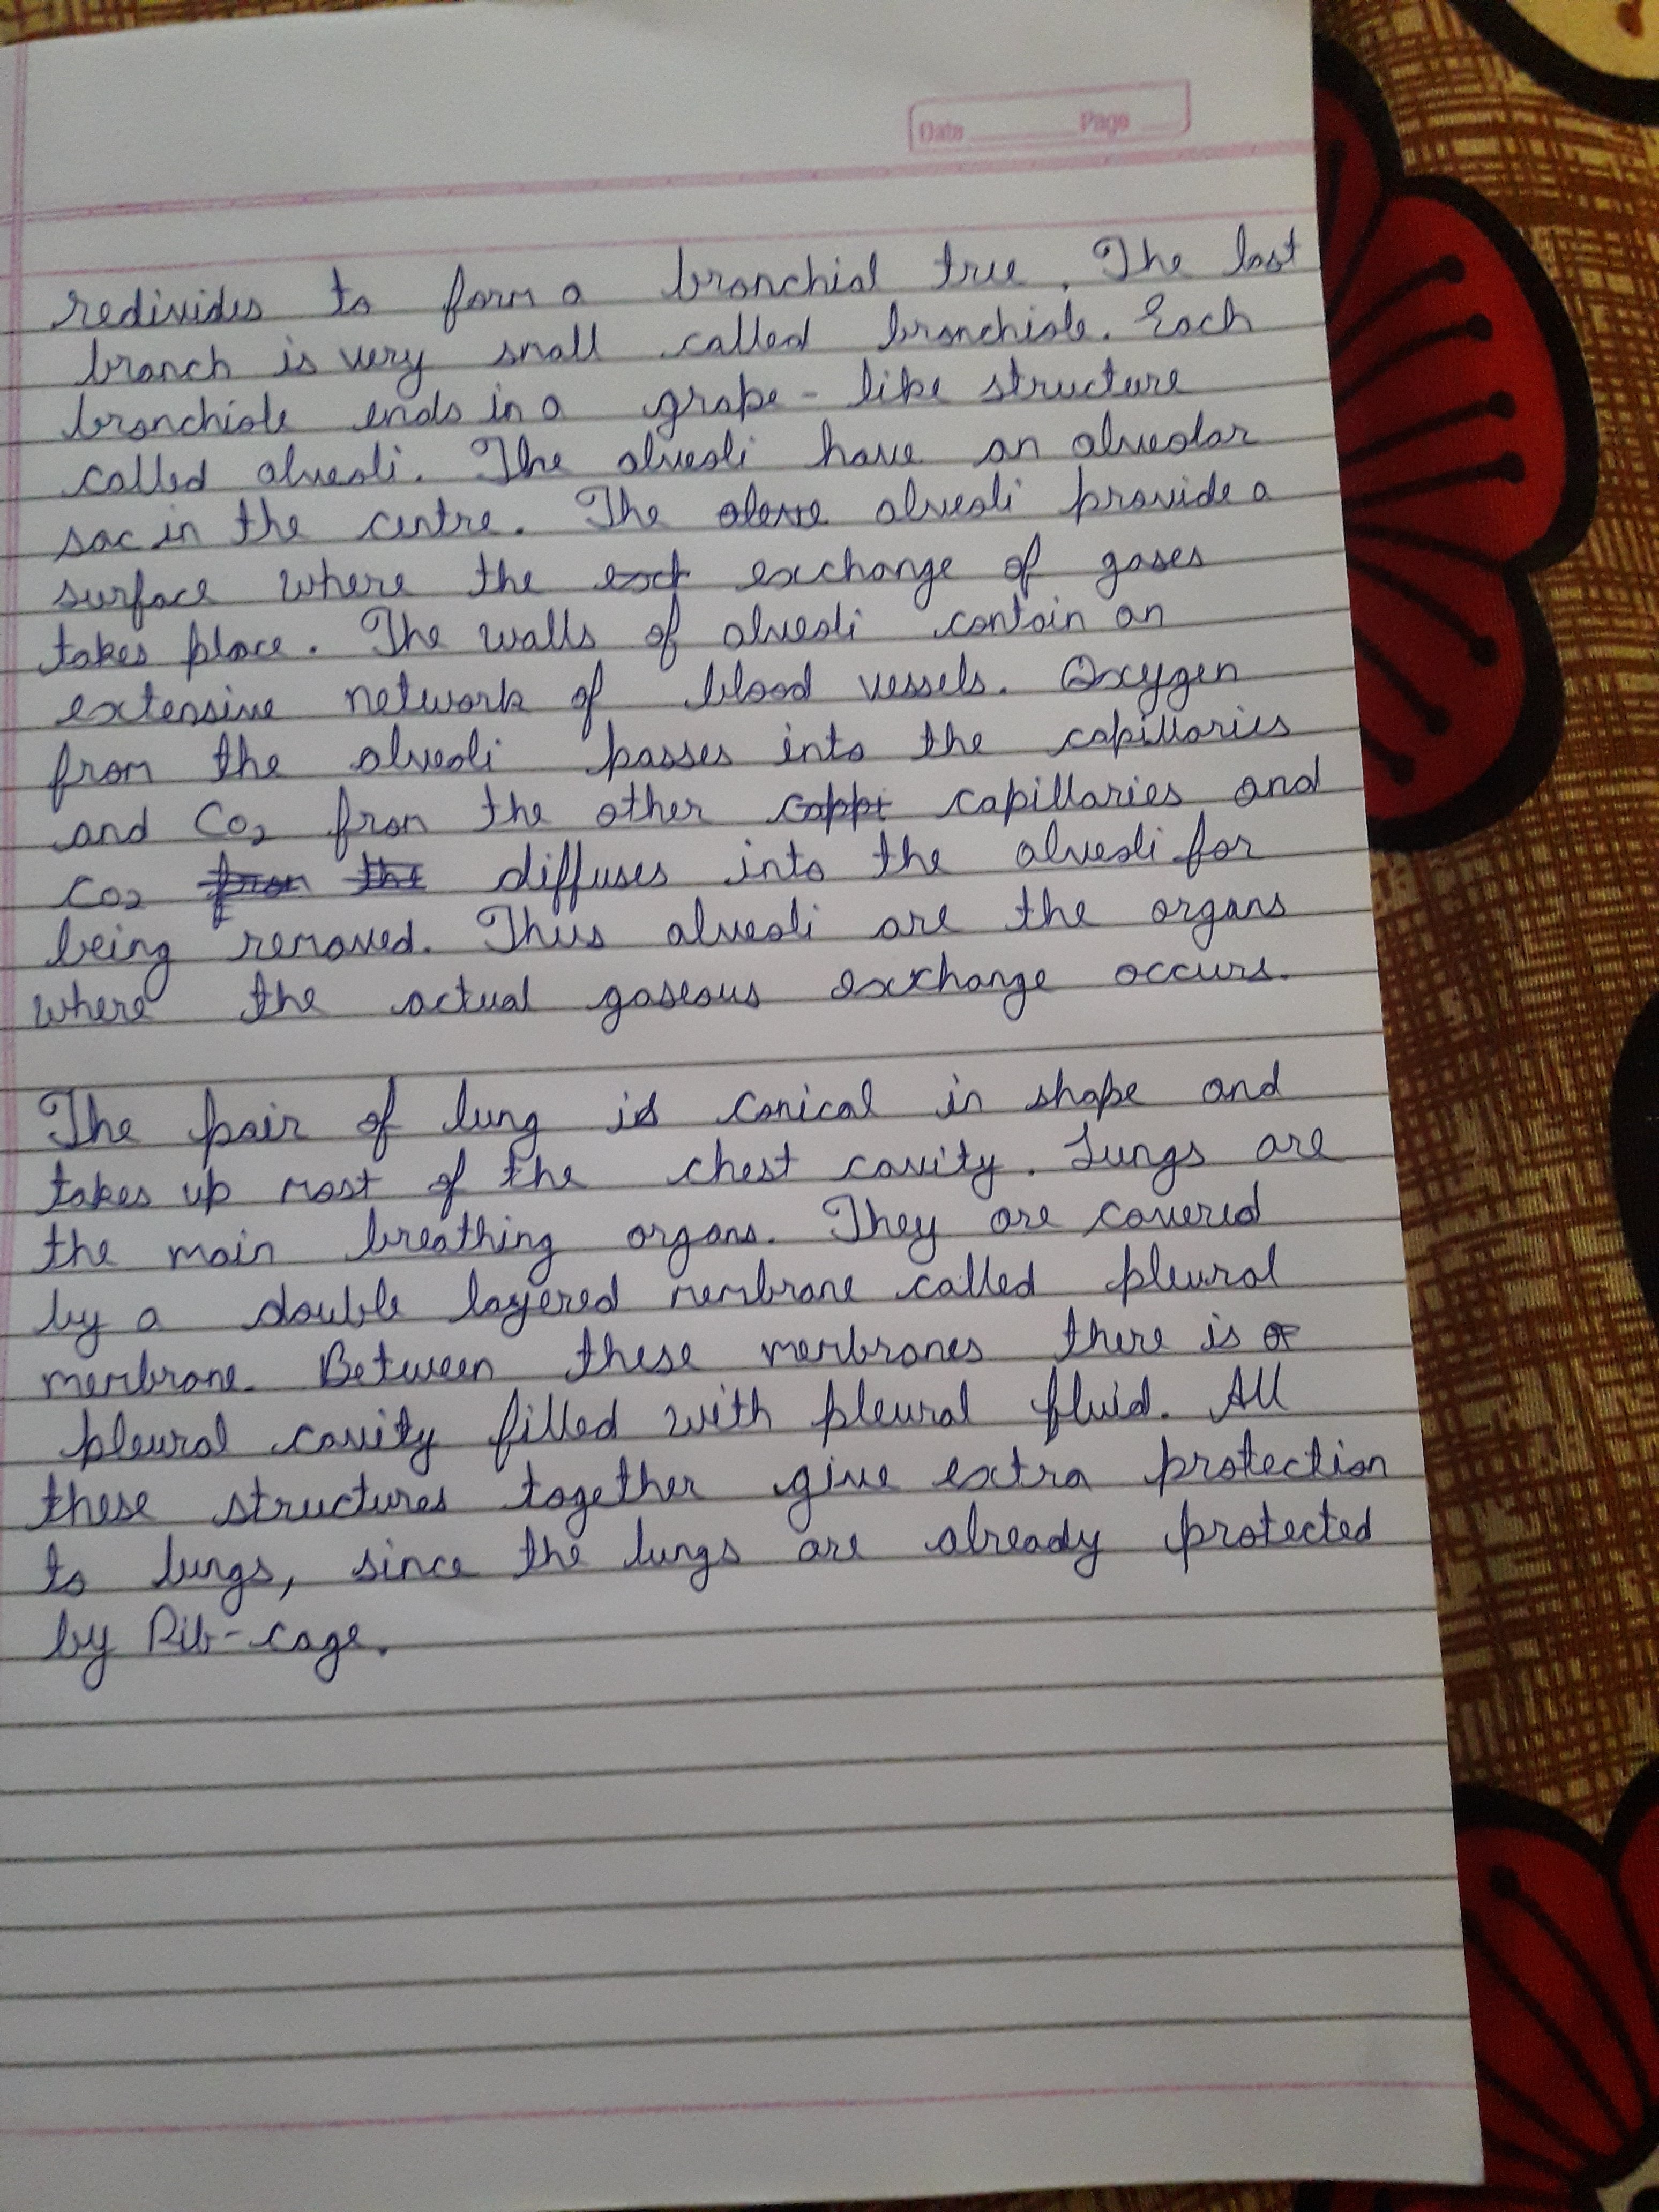 Date Page
redivides to form a bronchial tree. The last
branch is very small called bronchiole. Each
bronchiole ends in a grape-like structure
called alveoli. The alveoli have an alveolar
sac in the centre. The alveoli provide a
surface where the exchange of gases
takes place. The walls of alveoli contain an
extensive network of blood vessels. Oxygen
from the alveoli passes into the capillaries
and CO2 from the other capillaries and
CO2 from the diffuses into the alveoli for
being removed. Thus alveoli are the organs
where the actual gaseous exchange occurs.
The pair of lung is conical in shape and
takes up most of the chest cavity. Lungs are
the main breathing organs. They are covered
by a double layered membrane called pleural
membrane. Between these membranes there is a
pleural cavity filled with pleural fluid. All
these structures together give extra protection
to lungs, since the lungs are already protected
by Rib-cage.